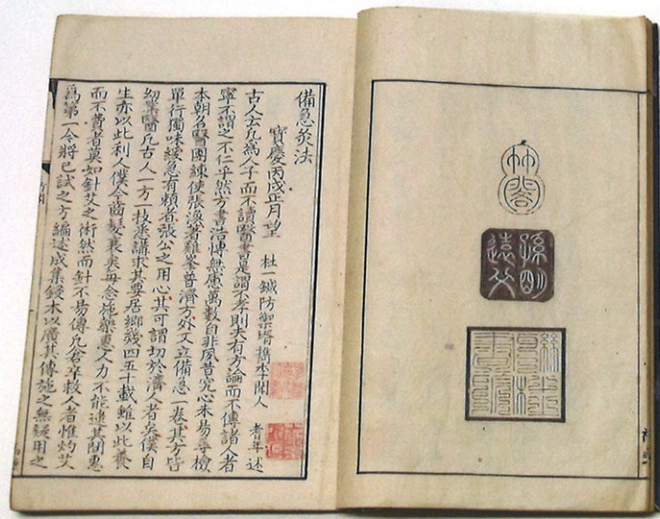 竹谷
孫明遠父
備急灸法
寶慶丙戌正月望 杜一鍼防禦壻檇李聞人 耆年述
古人云凡為人子而不讀醫書是謂不孝則夫有方論而不傳諸人者
寧不謂之不仁乎然方書浩博無慮萬數自非夙昔究心未易尋檢
本朝名醫團練使張渙著雞峯普濟方外又立備急一卷其方皆
單行獨味緩急有賴者張公之用心其可謂切於濟人者矣僕自
幼業醫凡古人一方一技悉講求其要居鄉幾四五十載雖以此養
生亦以此利人僕今齒髮衰矣每念施藥惠人力不能逮其間惠
而不費者莫如針艾之術然而針不易傳凡倉卒救人者惟灼艾
為第一今將已試之方編述成集鋟木以廣其傳施之無疑用之